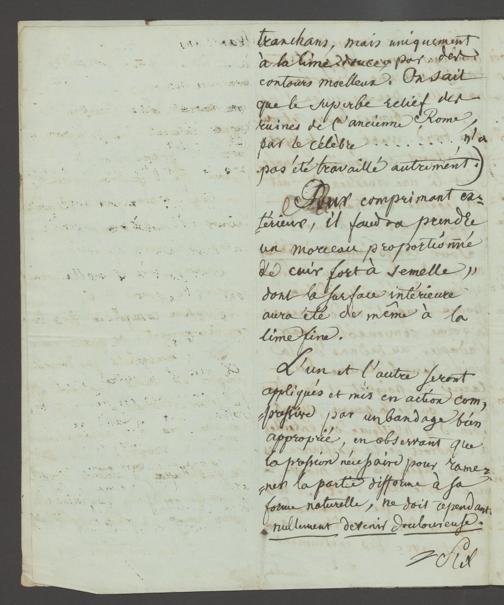 tranchans, mais uniquement
à la lime douce, par des
contours moelleux. On sait
que le superbe relief des
ruines de l'ancienne Rome,
par le célèbre . . . . . . . . n'a
pas été travaillé autrement.)
Pour comprimant ex-
térieur, il faudra prendre
un morceau proportionné
de cuir fort à semelle,
dont la surface intérieure
aura été de même à la
lime fine.
L'un et l'autre seront
appliqués et mis en action com-
pressive par un bandage bien
approprié, en observant que
la pression nécessaire pour rame-
ner la partie difforme à sa
forme naturelle, ne doit cependant
nullement devenir douloureuse.